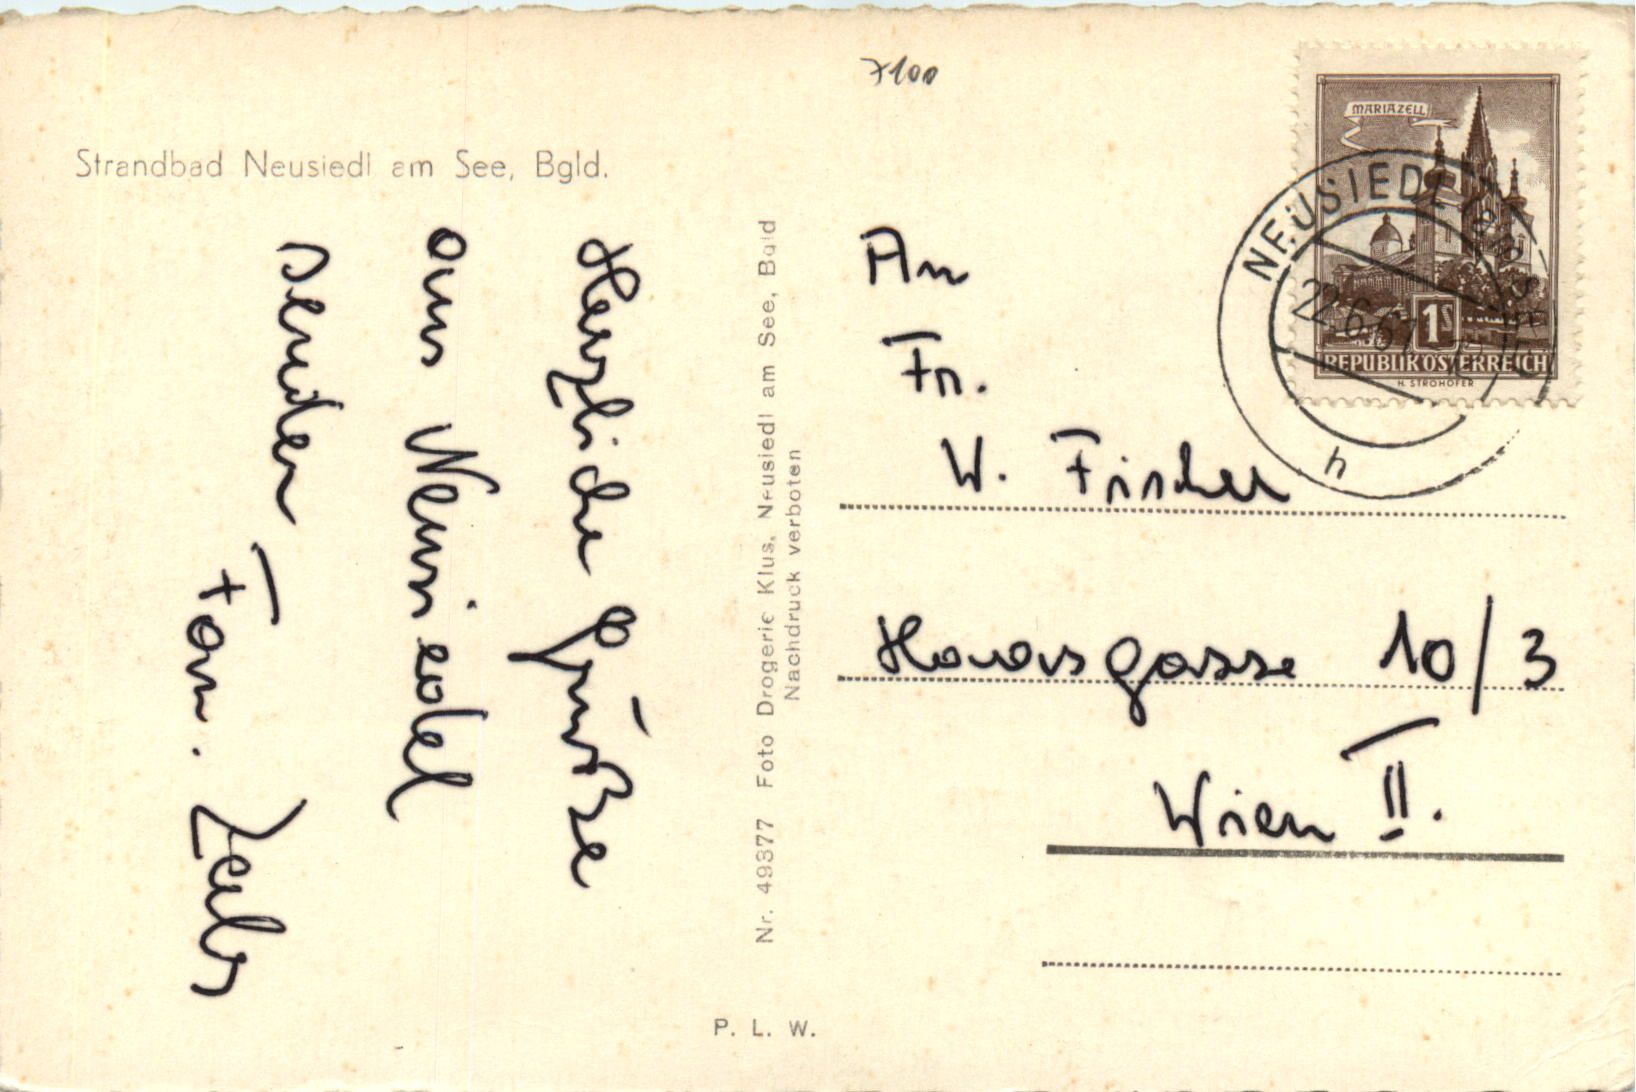 7100
Strandbad Neusiedl am See, Bgld.
Herzliche Grüße
aus Neusiedel
sendet
Fam.
Nr. 49377 Foto Drogerie Klus, Neusiedl am See, Bgld
Nachdruck verboten
P. L. W.
MARIAZELL
1S
REPUBLIK ÖSTERREICH
H. STROHOFER
NEUSIEDL am SEE
22.6.6
h
An
Fr.
W. Fischer
gasse 10/3
Wien II.